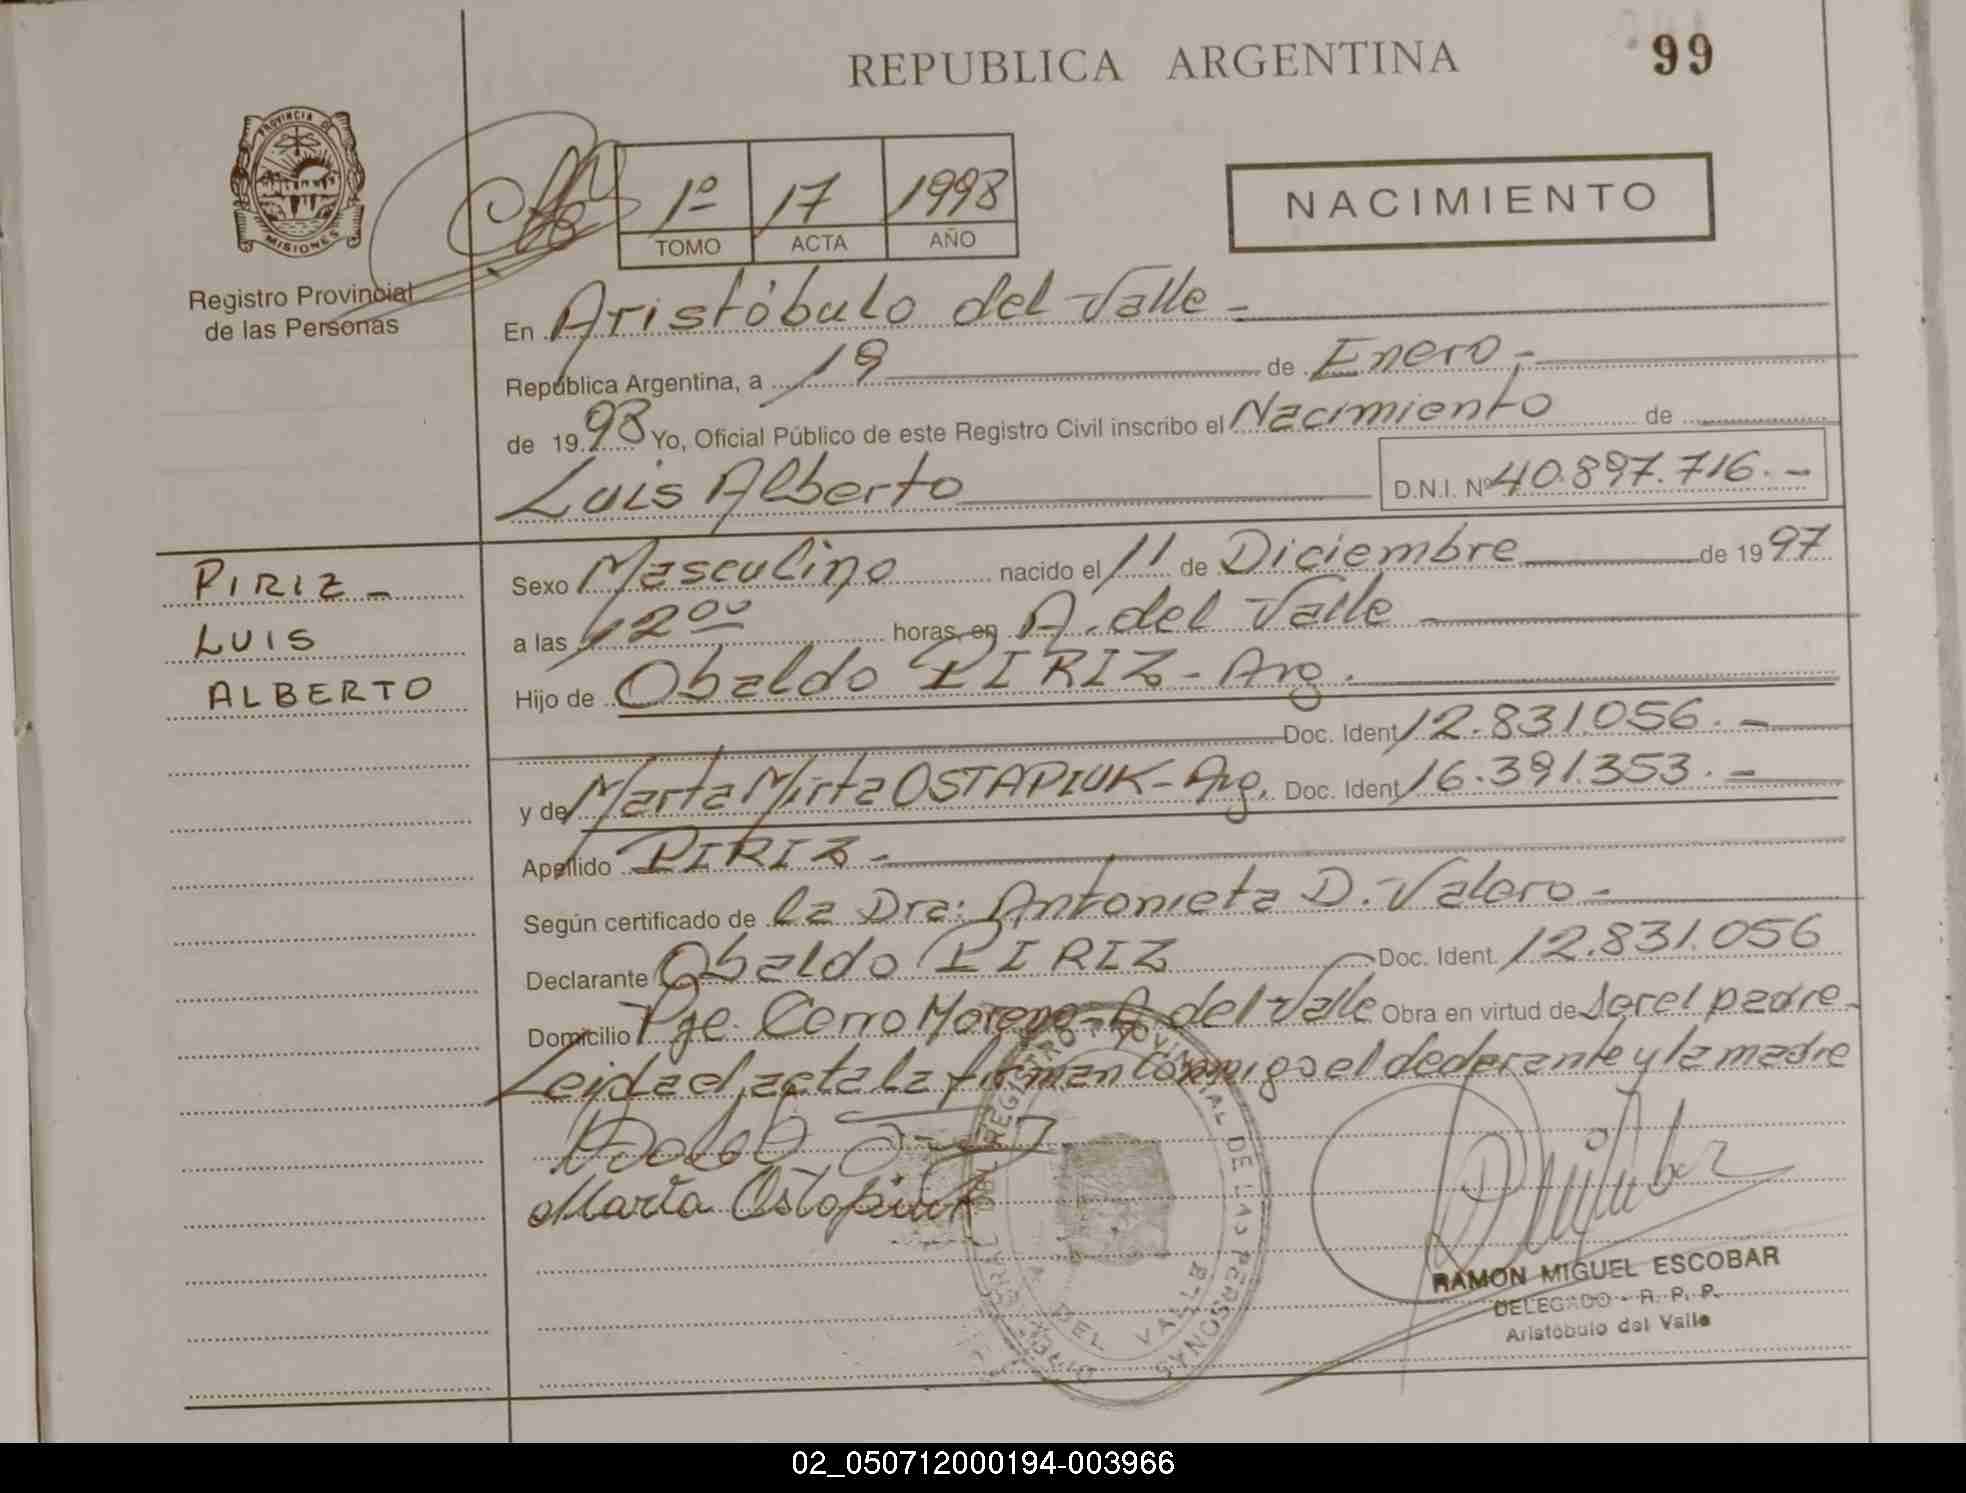 REPUBLICA ARGENTINA
99
PROVINCIA DE
MISIONES
Registro Provincial
de las Personas
1º 17 1998
TOMO ACTA AÑO
NACIMIENTO
En Aristóbulo del Valle -
República Argentina, a 19 de Enero -
de 1998 Yo, Oficial Público de este Registro Civil inscribo el Nacimiento de
Luis Alberto D.N.I. Nº 40.897.716. -
PIRIZ -
LUIS
ALBERTO
Sexo Masculino nacido el 11 de Diciembre de 1997
a las 12 00 horas, en A. del Valle
Hijo de Obaldo PIRIZ - Arg.
Doc. Ident 12.831.056. -
y de Marta Mirta OSTAPIUK - Arg. Doc. Ident 16.391.353. -
Apellido PIRIZ -
Según certificado de la Dra: Antonieta D. Valoro -
Declarante Obaldo PIRIZ Doc. Ident. 12.831.056
Domicilio Pje. Cerro Moreno - A. del Valle Obra en virtud de ser el padre -
Leida el acta la firman conmigo el declarante y la madre
Marta Ostapiuk
REGISTRO PROVINCIAL DE LAS PERSONAS
DEL VALLE
RAMON MIGUEL ESCOBAR
DELEGADO - R. P. P.
Aristóbulo del Valle
02_050712000194-003966